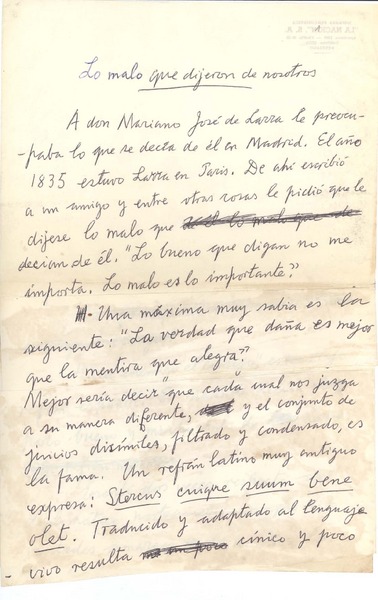 Lo malo que dijeron de nosotros
A don Mariano José de Larra le preocu-
-paba lo que se decía de él en Madrid. El año
1835 estuvo Larra en Paris. De ahí escribió
a un amigo y entre otras cosas le pidió que le
dijese lo malo que
decian de él. "Lo bueno que digan no me
importa. Lo malo es lo importante".
Una máxima muy sabia es la
siguiente: "La verdad que daña es mejor
que la mentira que alegra".
Mejor sería decir que cada cual nos juzga
a su manera diferente, y el conjunto de
juicios disímiles, filtrado y condensado, es
la fama. Un refrán latino muy antiguo
expresa: Stercus cuique suum bene
olet. Traducido y adaptado al lenguaje
vivo resulta cínico y poco